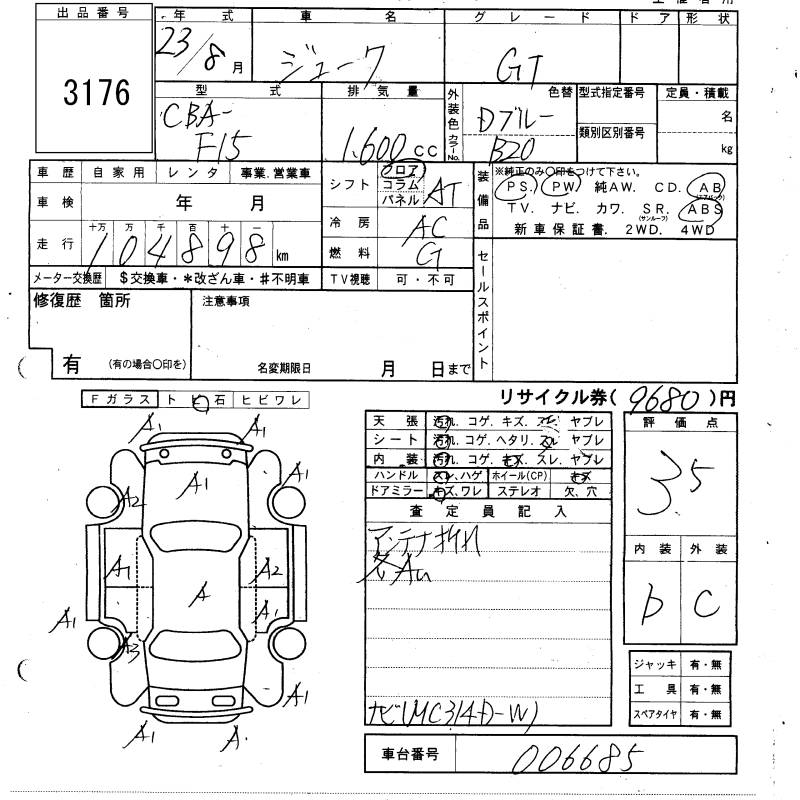 出品番号
3176
年 式 車 名 グレード ドア 形状
23/8月 ジューク GT
型 式 排気量 外装色 色替 カラーNo. 型式指定番号 定員・積載
CBA-F15 1,600cc Dブルー B20 類別区別番号 名 kg
車歴 自家用 レンタ 事業.営業車
車検 年 月
走行 十万 万 千 百 十 一
104898km
メーター交換歴 $交換車・*改ざん車・#不明車
シフト フロア コラム パネル AT
冷房 AC
燃料 G
TV視聴 可・不可
装備品 ※純正のみ○印をつけて下さい。
PS. PW 純AW. CD. AB (エアバック)
TV. ナビ. カワ. SR. (サンルーフ) ABS
新車保証書. 2WD. 4WD
セールスポイント
修復歴 箇所
有 (有の場合○印を)
注意事項
名変期限日 月 日まで
リサイクル券(9680)円
Fガラス トビ石 ヒビワレ
A1 A1
A1 A1
A2
A1 A2
A A1
A1
A3
A1
A1 A.
天張 汚れ. コゲ. キズ. スレ. ヤブレ
シート 汚れ. コゲ. ヘタリ. スレ ヤブレ
内装 汚れ. コゲ. キズ. スレ. ヤブレ
ハンドル スレ、ハゲ ホイール(CP) キズ
ドアミラー キズ、ワレ ステレオ 欠、穴
査定員記入
アンテナ折れ
各Au
ナビ(MC314D-W)
評価点
3.5
内装 外装
D C
ジャッキ 有・無
工具 有・無
スペアタイヤ 有・無
車台番号 006685